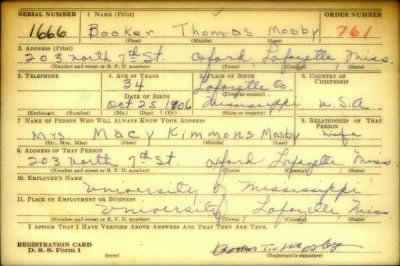 SERIAL NUMBER 1. NAME (Print) ORDER NUMBER
1666 Booker Thomas Mosby 761
(First) (Middle) (Last)
2. ADDRESS (Print)
203 North 7th St. Oxford, Lafayette Miss.
(Number and street or R. F. D. number) (Town) (County) (State)
3. TELEPHONE 4. AGE IN YEARS 5. PLACE OF BIRTH 6. COUNTRY OF CITIZENSHIP
34 Lafayette Co
DATE OF BIRTH
Oct 25 1906 Mississippi U.S.A
(Exchange) (Number) (Mo.) (Day) (Yr.) (State or country)
7. NAME OF PERSON WHO WILL ALWAYS KNOW YOUR ADDRESS 8. RELATIONSHIP OF THAT PERSON
Mrs. Macy Kimmons Mosby wife
(Mr., Mrs., Miss) (First) (Middle) (Last)
9. ADDRESS OF THAT PERSON
203 North 7th St. Oxford Lafayette Miss
(Number and street or R. F. D. number) (Town) (County) (State)
10. EMPLOYER'S NAME
University of Mississippi
11. PLACE OF EMPLOYMENT OR BUSINESS
University, Lafayette, Miss
(Number and street or R. F. D. number) (Town) (County) (State)
I AFFIRM THAT I HAVE VERIFIED ABOVE ANSWERS AND THAT THEY ARE TRUE.
REGISTRATION CARD
D. S. S. Form 1 (Registrant's signature)